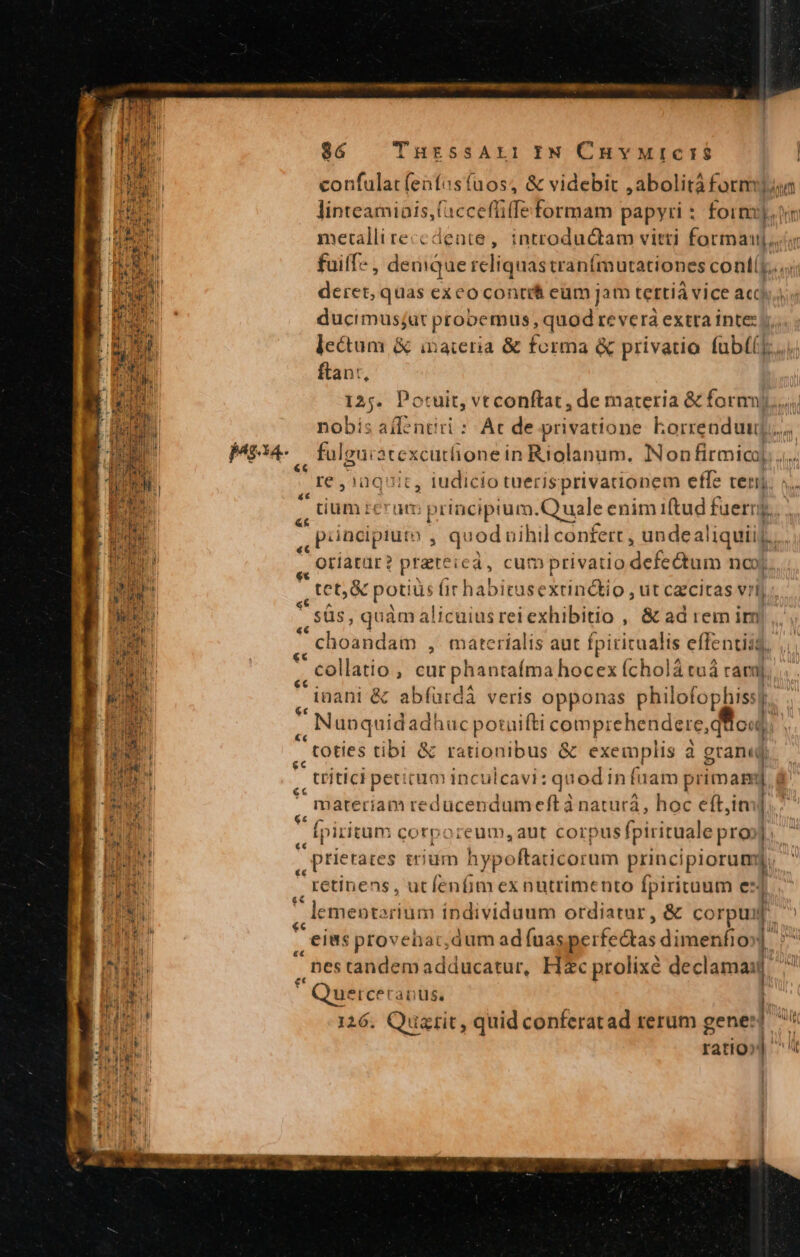 86 THESSALI IN CHYMICIS
conſulat ſenſus ſuos, & videbit, abolitâ form
linteaminis, ſucceſſiſſe formam papyri: form
metalli recedente, introductam vitri forma
fuiſſe, denique reliquas tranſmutationes con
deret, quas ex eo contrà eùm jam tertiâ vice
ducimus; ut probemus, quod reverâ extra
lectum & materia & forma & privatio
ſtant.
125. Potuit, vt conſtat, de materia & form
nobis aſſentiri: At de privatione horrendu
pag. 34. fulgurat excurſione in Riolanum. Non firmio
“ re, inquit, iudicio tueris privationem eſſe
“ tium rerum principium. Quale enim iſtud fuer
“ principium, quod nihil confert, unde aliqui
“ oriatur? prætereà, cum privatio defectum no
“ tet, & potiùs ſit habitus extinctio, ut cæcitas
“ sûs, quàm alicuius rei exhibitio, & ad rem
“ choandam, materialis aut ſpiritualis eſſenti
“ collatio, cur phantaſma hoc ex ſcholâ tuâ
“ inani & abſurdâ veris opponas philoſophis
“ Nunquid adhuc potuiſti comprehendere,
“ toties tibi & rationibus & exemplis à gran
“ tritici petitum inculcavi: quod in ſuam primam
“ materiam reducendum eſt à naturâ, hoc eſt,
“ ſpiritum corporeum, aut corpus ſpirituale pro
“ prietates trium hypoſtaticorum principiorum
“ retinens, ut ſenſim ex nutrimento ſpirituum e
“ lementarium individuum ordiatur, & corpu
“ eius provehat, dum ad ſuas perfectas dimenſio
“ nes tandem adducatur. Hæc prolixè declama
“ Quercetanus.
126. Quærit, quid conferat ad rerum gene
ratio